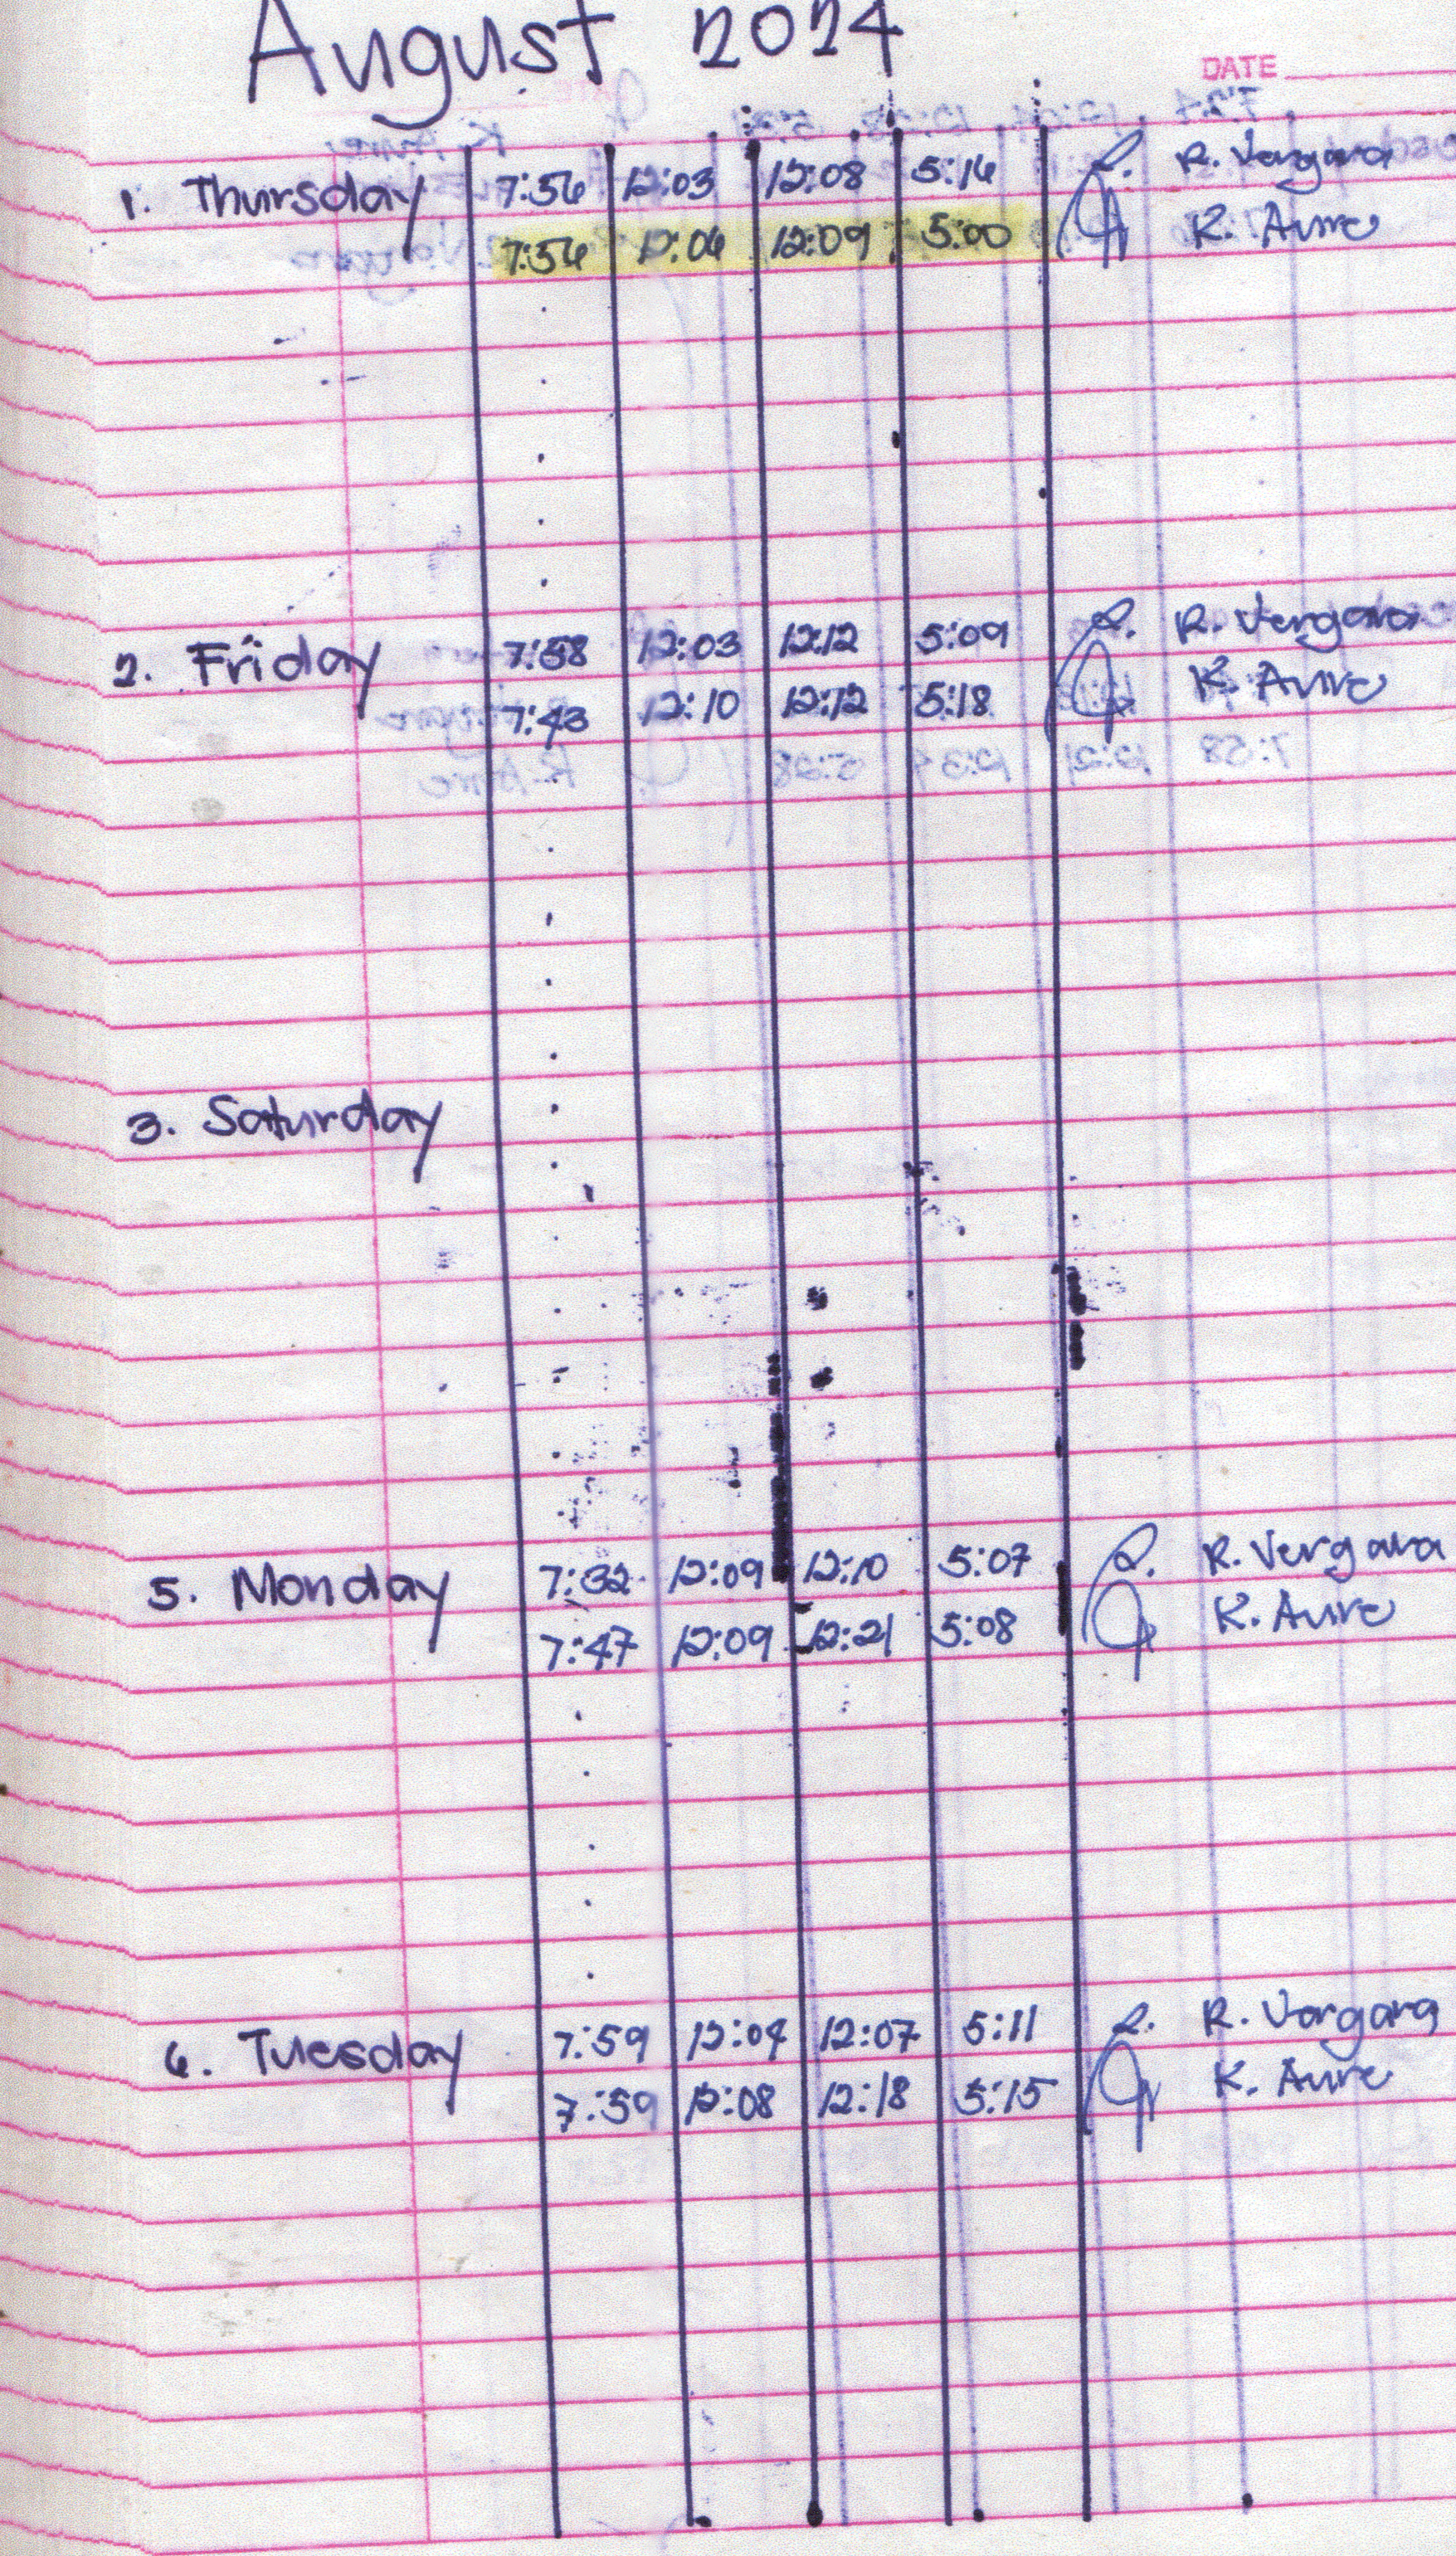 August 2024
DATE
1. Thursday 7:56 12:03 12:08 5:16 R. Vergara
7:56 12:06 12:09 5:00 K. Aure
2. Friday 7:58 12:03 12:12 5:09 R. Vergara
7:43 12:10 12:12 5:18 K. Aure
3. Saturday
5. Monday 7:32 12:09 12:10 5:07 R. Vergara
7:47 12:09 12:21 5:08 K. Aure
6. Tuesday 7:59 12:04 12:07 5:11 R. Vergara
7:59 12:08 12:18 5:15 K. Aure